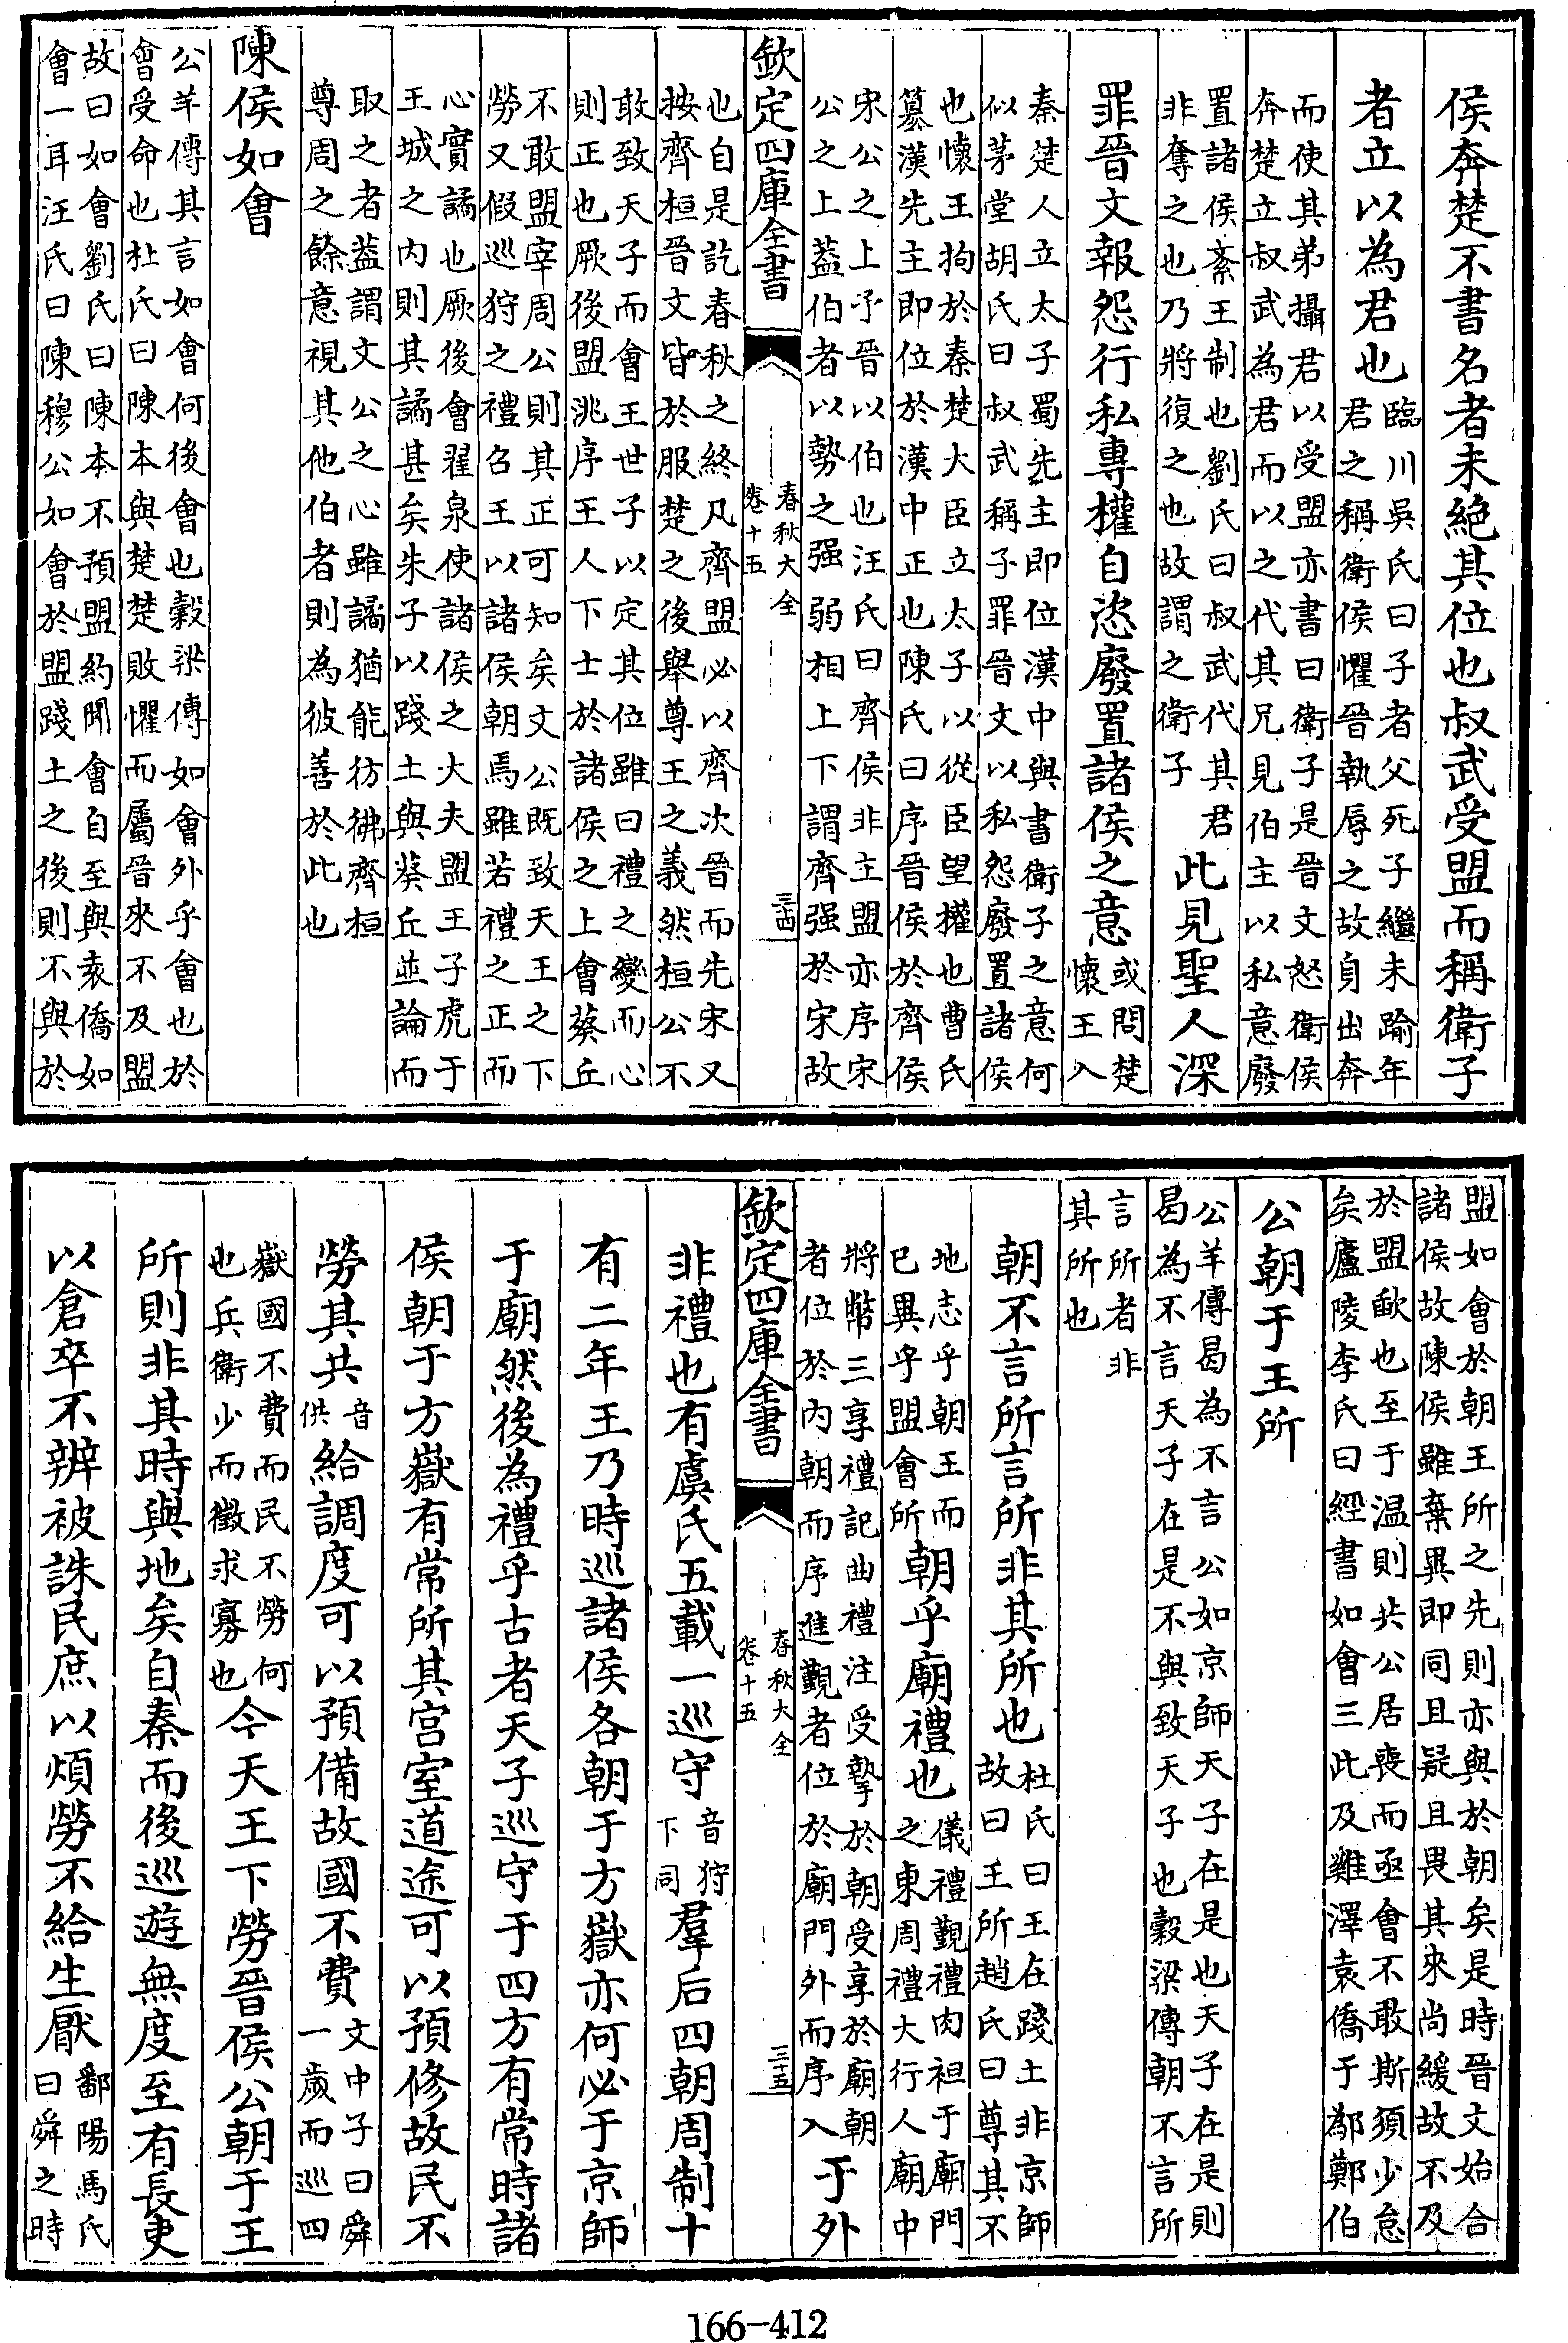 侯奔楚不書名者未絶其位也叔武受盟而稱衛子
者立以為君也
臨川吳氏曰子者父死子繼未踰年
君之稱衛侯懼晉執辱之故自出奔
而使其弟攝君以受盟亦書曰衛子是晉文怒衛侯
奔楚立叔武為君而以之代其兄見伯主以私意廢
置諸侯紊王制也劉氏曰叔武代其君
非奪之也乃將復之也故謂之衛子
此見聖人深
罪晉文報怨行私專權自恣廢置諸侯之意
或問楚
懷王入
秦楚人立太子蜀先主即位漢中與書衛子之意何
似茅堂胡氏曰叔武稱子罪晉文以私怨廢置諸侯
也懷王拘於秦楚大臣立太子以從臣望權也曹氏
簒漢先主即位於漢中正也陳氏曰序晉侯於齊侯
宋公之上予晉以伯也汪氏曰齊侯非主盟亦序宋
公之上蓋伯者以勢之强弱相上下謂齊强於宋故
欽定四庫全書
春秋大全
卷十五
三十四
也自是訖春秋之終凡齊盟必以齊次晉而先宋又
按齊桓晉文皆於服楚之後舉尊王之義然桓公不
敢致天子而會王世子以定其位雖曰禮之變而心
則正也厥後盟洮序王人下士於諸侯之上會葵丘
不敢盟宰周公則其正可知矣文公既致天王之下
勞又假巡狩之禮召王以諸侯朝焉雖若禮之正而
心實譎也厥後會翟泉使諸侯之大夫盟王子虎于
王城之内則其譎甚矣朱子以踐土與葵丘並論而
取之者蓋謂文公之心雖譎猶能彷彿齊桓
尊周之餘意視其他伯者則為彼善於此也
陳侯如會
公羊傳其言如會何後會也穀梁傳如會外乎會也於
會受命也杜氏曰陳本與楚楚敗懼而屬晉來不及盟
故曰如會劉氏曰陳本不預盟約聞會自至與袁僑如
會一耳汪氏曰陳穆公如會於盟踐土之後則不與於
盟如會於朝王所之先則亦與於朝矣是時晉文始合
諸侯故陳侯雖棄異即同且疑且畏其來尚緩故不及
於盟歃也至于温則共公居喪而亟會不敢斯須少怠
矣廬陵李氏曰經書如會三此及雞澤袁僑于鄬鄭伯
公朝于王所
公羊傳曷為不言公如京師天子在是也天子在是則
曷為不言天子在是不與致天子也穀梁傳朝不言所
言所者非
其所也
朝不言所言所非其所也
杜氏曰王在踐土非京師
故曰王所趙氏曰尊其不
地志乎朝王而
已異乎盟會所
朝乎廟禮也
儀禮覲禮肉袒于廟門
之東周禮大行人廟中
將幣三享禮記曲禮注受摯於朝受享於廟朝
者位於内朝而序進覲者位於廟門外而序入
于外
欽定四庫全書
春秋大全
卷十五
三十五
非禮也有虞氏五載一巡守
音狩
下同
羣后四朝周制十
有二年王乃時巡諸侯各朝于方嶽亦何必于京師
于廟然後為禮乎古者天子巡守于四方有常時諸
侯朝于方嶽有常所其宫室道途可以預修故民不
勞其共
音
供
給調度可以預備故國不費
文中子曰舜
一歲而巡四
嶽國不費而民不勞何
也兵衛少而徵求寡也
今天王下勞晉侯公朝于王
所則非其時與地矣自秦而後巡遊無度至有長吏
以倉卒不辨被誅民庶以煩勞不給生厭
鄱陽馬氏
曰舜之時
166-412